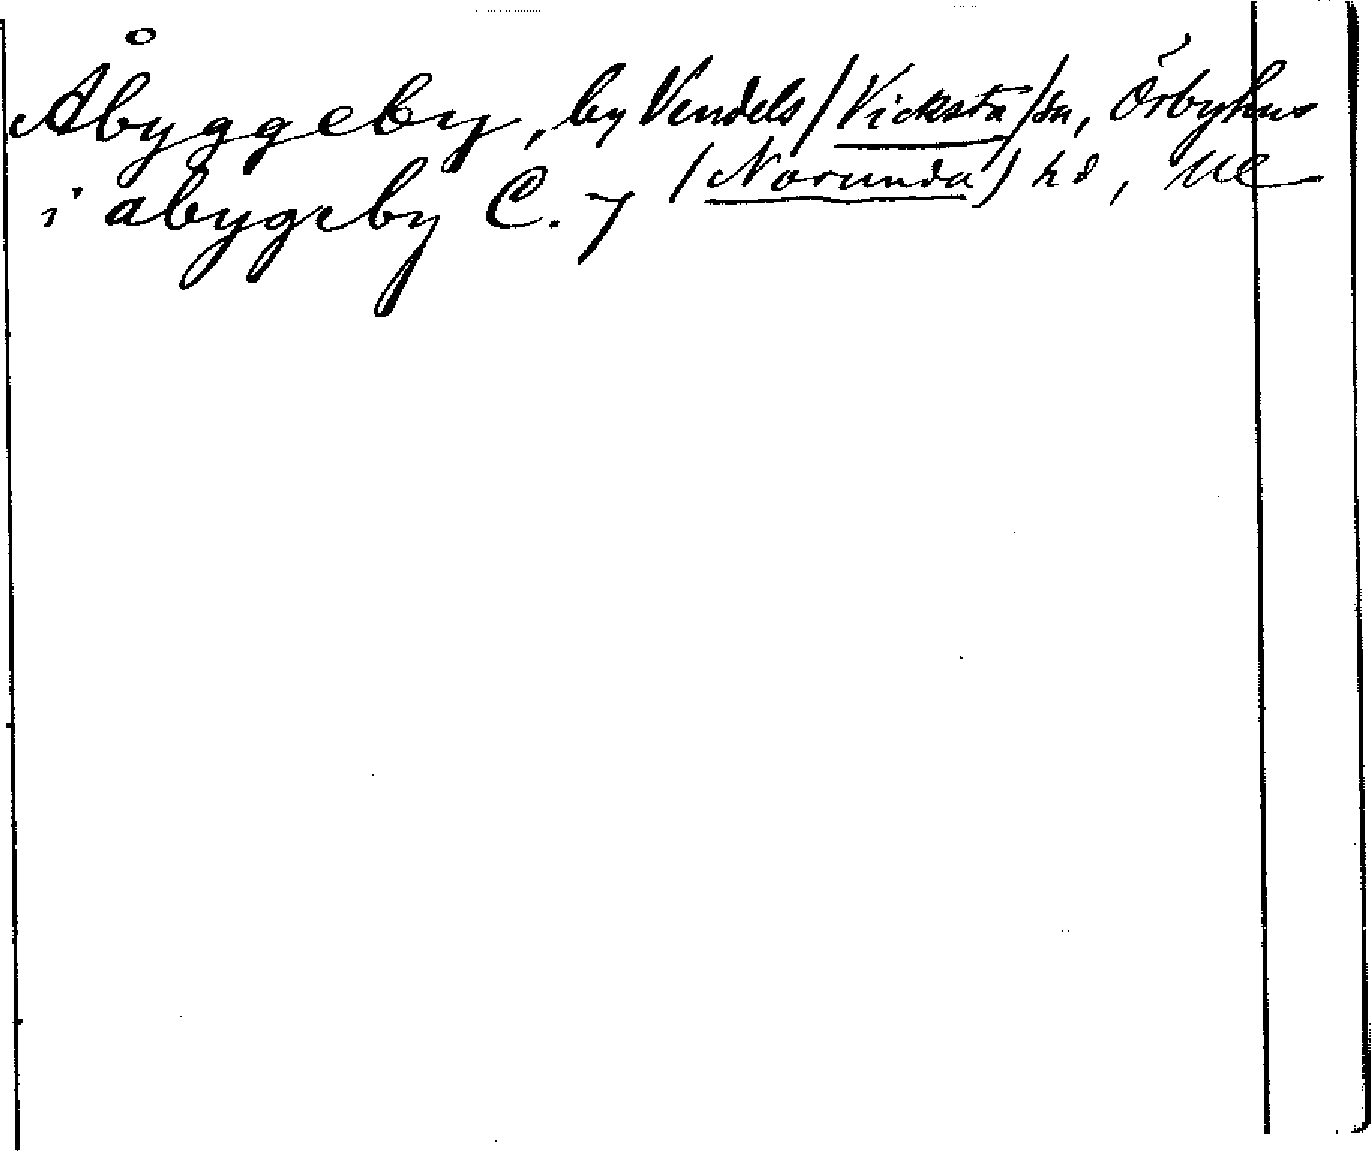 Åbyggeby, by Vendels /Vicksta/ sn, Örbyhus
i abygeby C. 7 (Norunda) hd, Ul